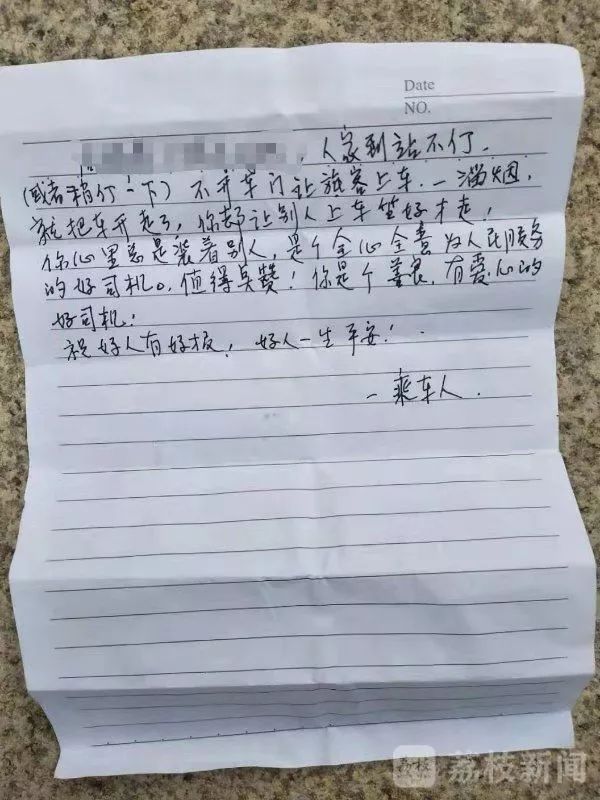 Date
NO.
，人家到站不仃．
(或者稍仃一下) 不开车门让旅客上车．一溜烟．
就把车开走了，你都让别人上车坐好才走，
你心里总是装着别人，是个全心全意为人民服务
的好司机。值得点赞！你是个善良．有爱心的
好司机！
祝好人有好报！好人一生平安！
一乘车人．
荔枝新闻